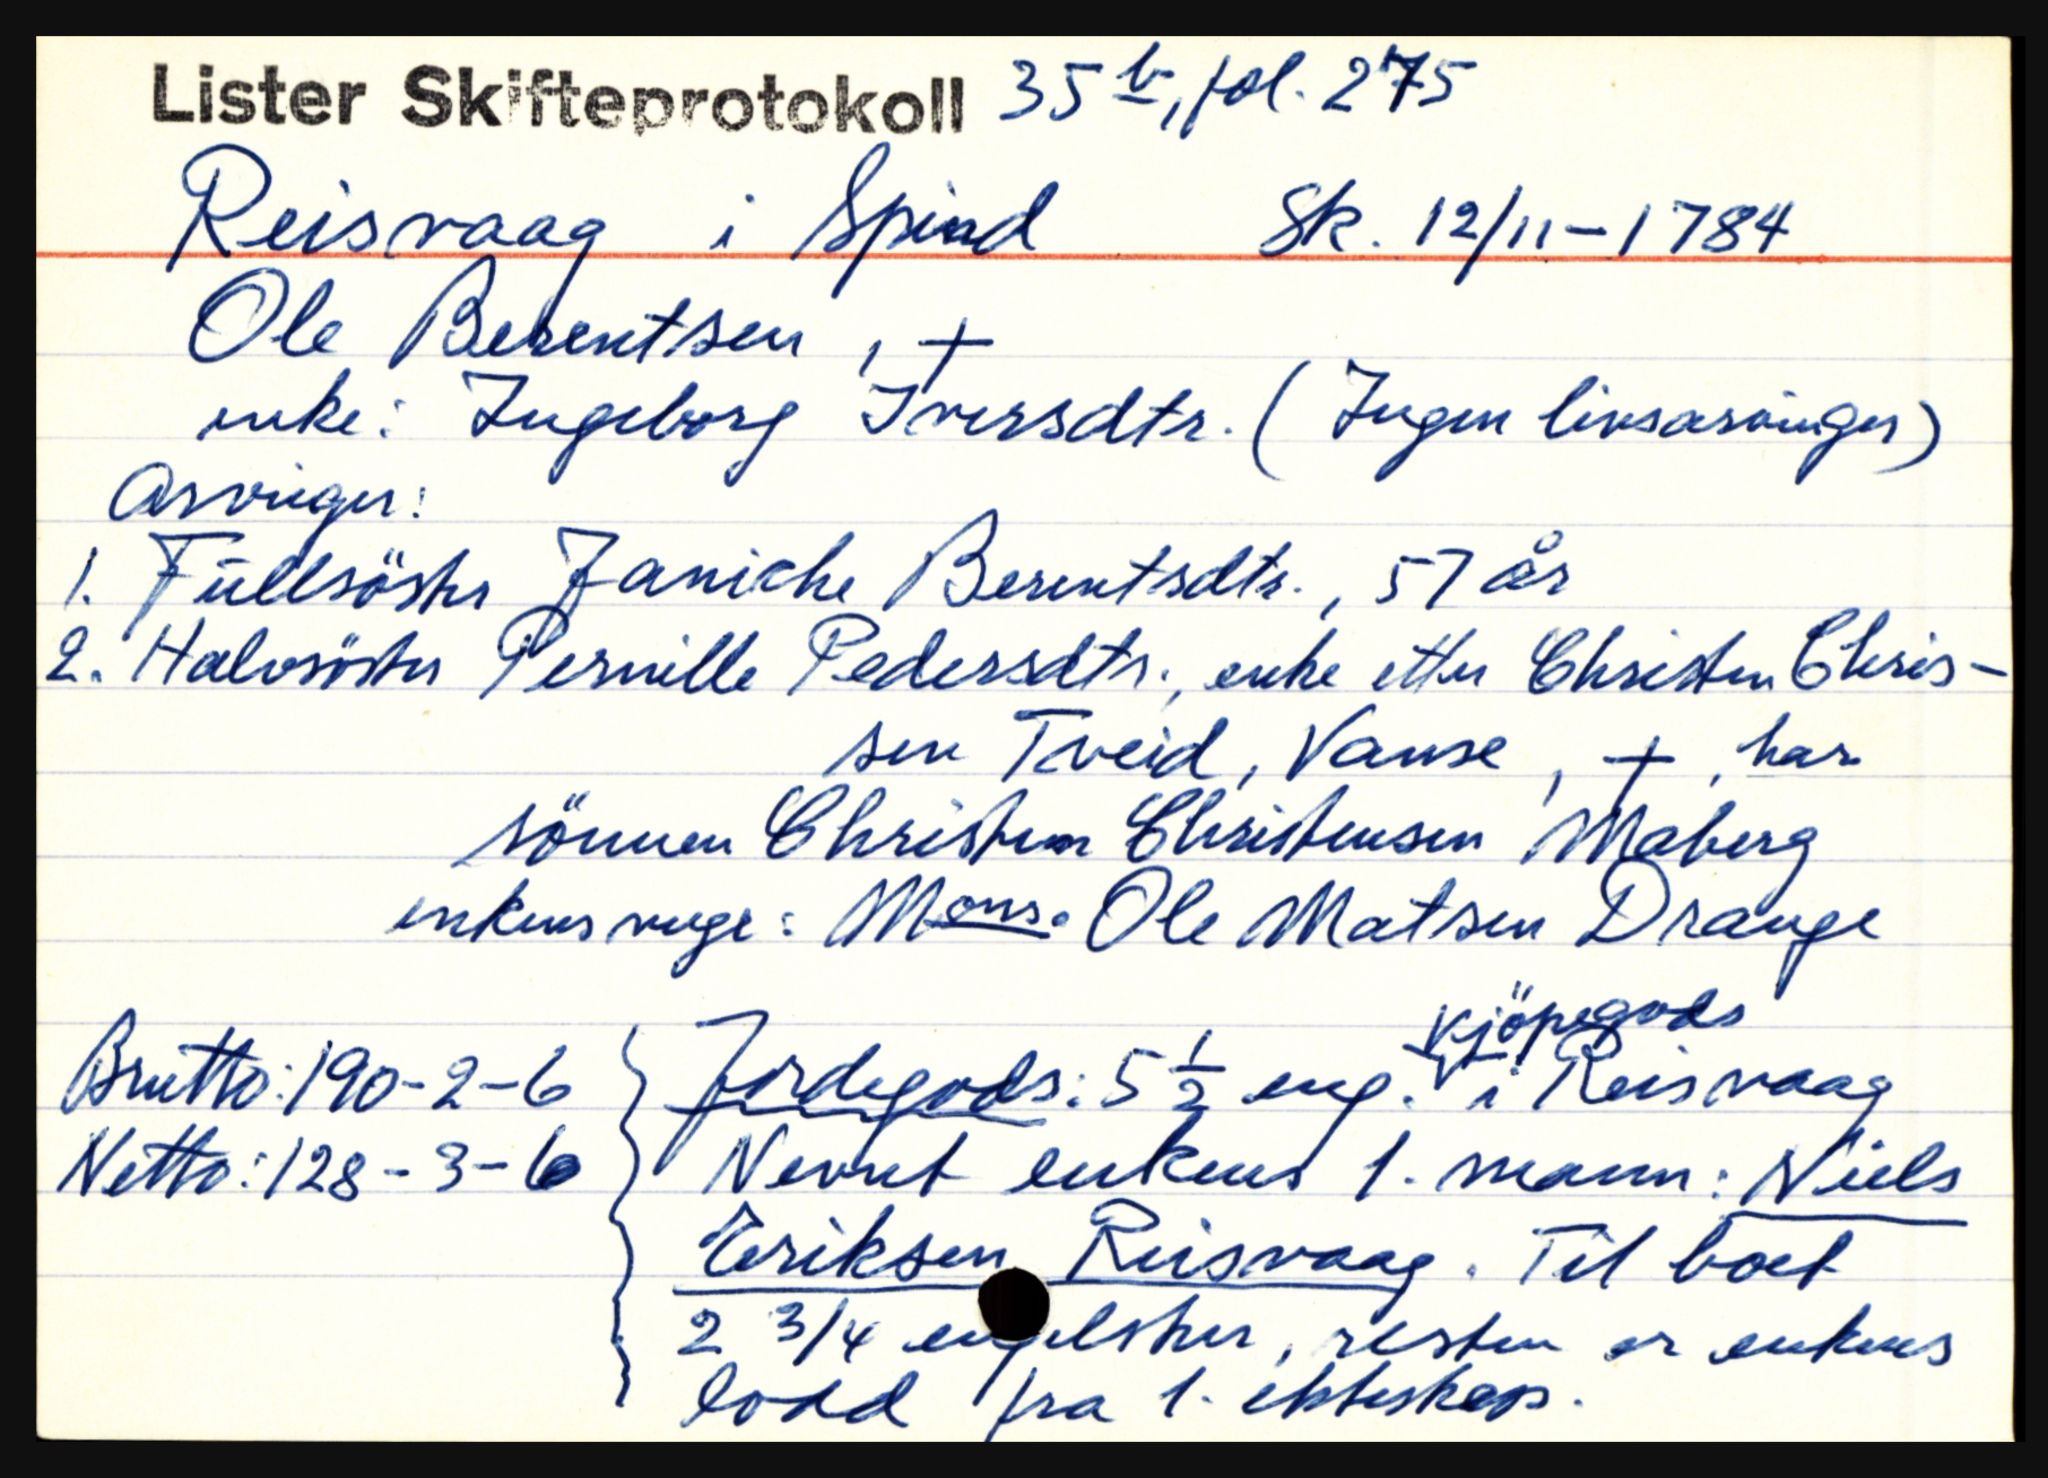 Lister Skifteprotokoll 35 b, fol. 275
Reisvaag i Spind Sk. 12/11-1784
Ole Berentsen, +
enke: Ingeborg Iversdtr. (Ingen livsarvinger)
Arvinger:
1. Fullsöster Janiche Berentsdtr., 57 år
2. Halvsöster Pernille Pedersdtr., enke etter Christen Chris-
sen Tveid, Vanse, +, har
sönnen Christen Christensen Maberg
enkens verge: Mons. Ole Matsen Drange
kjöpegods
Brutto: 190-2-6 Jordegods: 5 1/2 eng. i Reisvaag
Netto: 128-3-6 Nevnt enkens 1. mann: Niels
Eriksen Reisvaag. Til boet
2 3/4 engelster, resten er enkens
lodd fra 1. ekteskap.